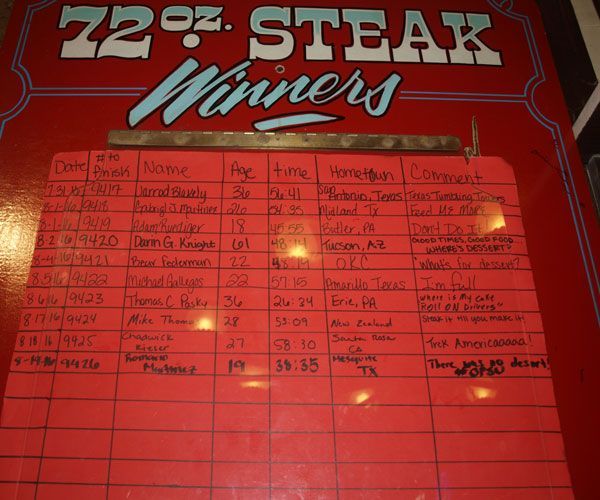 72 oz. STEAK
Winners
Date # to finish Name Age time Hometown Comment
7-31-16 9417 Jarrod Blakely 36 56:41 San Antonio, Texas Texas Tumbling Towers
8-1-16 9418 Gabriel J. Martinez 26 54:35 Midland Tx Feed Me MORE
8-1-16 9419 Adam Ruediger 18 45:55 Butler, PA Don't Do it
8-2-16 9420 Darin G. Knight 61 48:14 Tucson, AZ GOOD TIMES, GOOD FOOD WHERE'S DESSERT?
8-4-16 9421 Bear Federman 22 48:19 OKC "Whats for dessert?
8-5-16 9422 Michael Gallegos 22 57:15 Amarillo Texas I'm full
8-6-16 9423 Thomas C. Pasky 36 26:34 Erie, PA Where is My cake ROLL ON DRIVERS
8 17 16 9424 Mike Thoma 28 53:09 New Zealand Steak it till you make it!
8 18 16 9425 Chadwick Rieser 27 58:30 Santa Rosa Ca Trek Americaaaaa!
8-19-16 9426 Romario Martinez 19 38:35 Mesquite TX There was no desert!